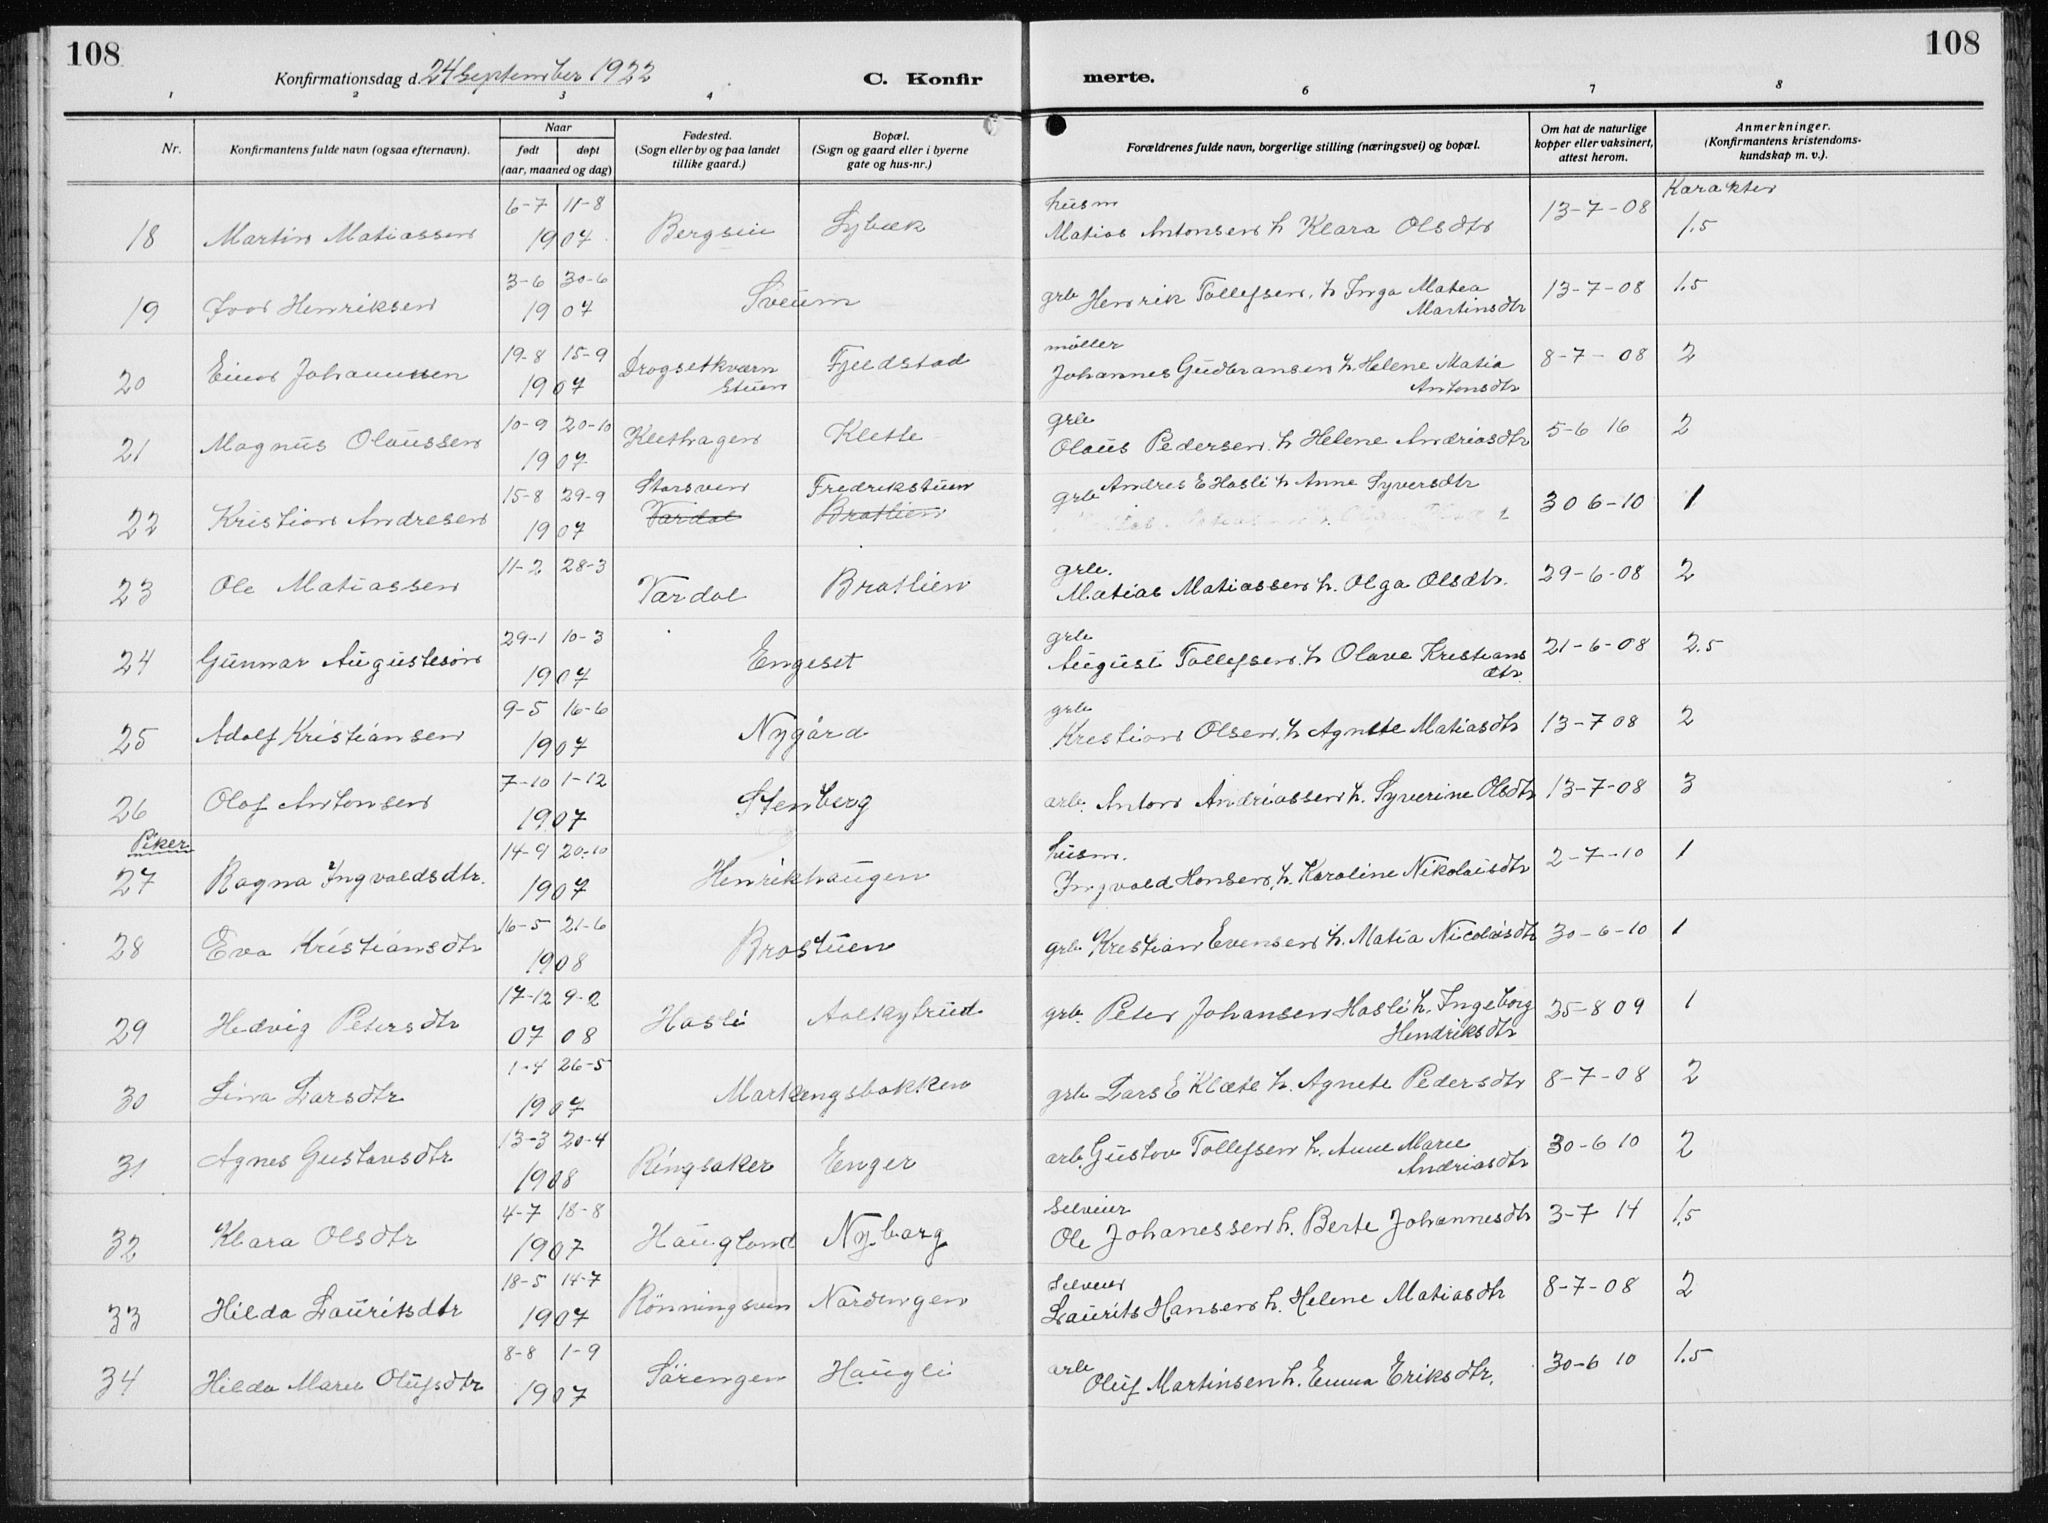 108
108
Konfirmationsdag d. 24 September 1922
C. Konfir
merte.
1 2 3 4 6 7 8
Nr.
Konfirmantens fulde navn (ogsaa efternavn).
Naar
født døpt
(aar, maaned og dag)
Fødested.
(Sogn eller by og paa landet
tillike gaard.)
Bopæl.
(Sogn og gaard eller i byerne
gate og hus-nr.)
Forældrenes fulde navn, borgerlige stilling (næringsvei) og bopæl.
Om hat de naturlige
kopper eller vaksinert,
attest herom.
Anmerkninger.
(Konfirmantens kristendoms-
kundskap m. v.).
Karakter
6-7 11-8 husm
18 Martin Matiassen 1907 Bergseie Sybæk Matias Antonsen h Klara Olsdtr 13-7-08 1.5
3-6 30-6
19 Ivor Henriksen 1907 Sveum grb Henrik Tollefsen. h Inga Matea 13-7-08 1.5
Martinsdtr
19-8 15-9 møller
20 Einar Johannessen 1907 Drogsetkværn Fjeldstad Johannes Gudbransen h. Helene Matia 8-7-08 2
stuen Antonsdtr
10-9 20-10 grb
21 Magnus Olaussen 1907 Klethagen Klette Olaus Pedersen. h Helene Andriasdtr 5-6 16 2
15-8 29-9 Storsven Fredrikstuen grb Andres E Hasli h Anne Syversdtr
22 Kristian Andresen 1907 Vardal Bratlien 30 6-10 1
11-2 28-3 grb.
23 Ole Matiassen Vardal Bratlien Matias Matiassen h. Olga Olsdtr. 29-6-08 2
29-1 10-3 grb
24 Gunnar Augustesøn 1907 Engeset August Tollefsen. h Olave Kristians 21-6-08 2.5
dtr.
9-5 16-6 grb
25 Adolf Kristiansen 1907 Nygård Kristian Olsen. h Agnete Matiasdtr 13-7 08 2
7-10 1-12
26 Olaf Antonsen 1907 Stenberg arb. Anton Andriassen h. Syverine Olsdtr 13-7-08 3
Piker
14-9 20-10 husm.
27 Ragna Ingvaldsdtr. 1907 Henrikhaugen Ingvald Hansen, h. Karoline Nikolaisdtr 2-7-10 1
16-5 21-6
28 Eva Kristiansdtr 1908 Brostuen grb Kristian Evensen h. Matia Nicolaisdtr 30-6-10 1
17-12 9-2
29 Hedvig Petersdtr 07 08 Hasli Aalkytrud grb. Peter Johansen Hasli h. Ingeborg 25-8 09 1
Hendriksdtr
1-4 26-5
30 Lina Larsdtr 1907 Markengsbakken grb Lars E Klæte h. Agnete Pedersdtr 8-7-08 2
13-3 20-4
31 Agnes Gustavsdtr 1908 Ringsaker Enger arb Gustav Tollefsen h. Anne Marie 30-6 10 2
Andriasdtr
4-7 18-8 selveier
32 Klara Olsdtr 1907 Haugland Nyborg Ole Johanessen h. Berte Johannesdtr 3-7 14 1.5
18-5 14-7 selveier
33 Hilda Lauritsdtr 1907 Rönningsven Nordengen Laurits Hansen h. Helene Matiasdtr 8-7-08 2
8-8 1-9 arb
34 Hilda Marie Olufsdtr 1907 Sörengen Haugli Oluf Martinsen h. Emma Eriksdtr. 30-6 10 1.5